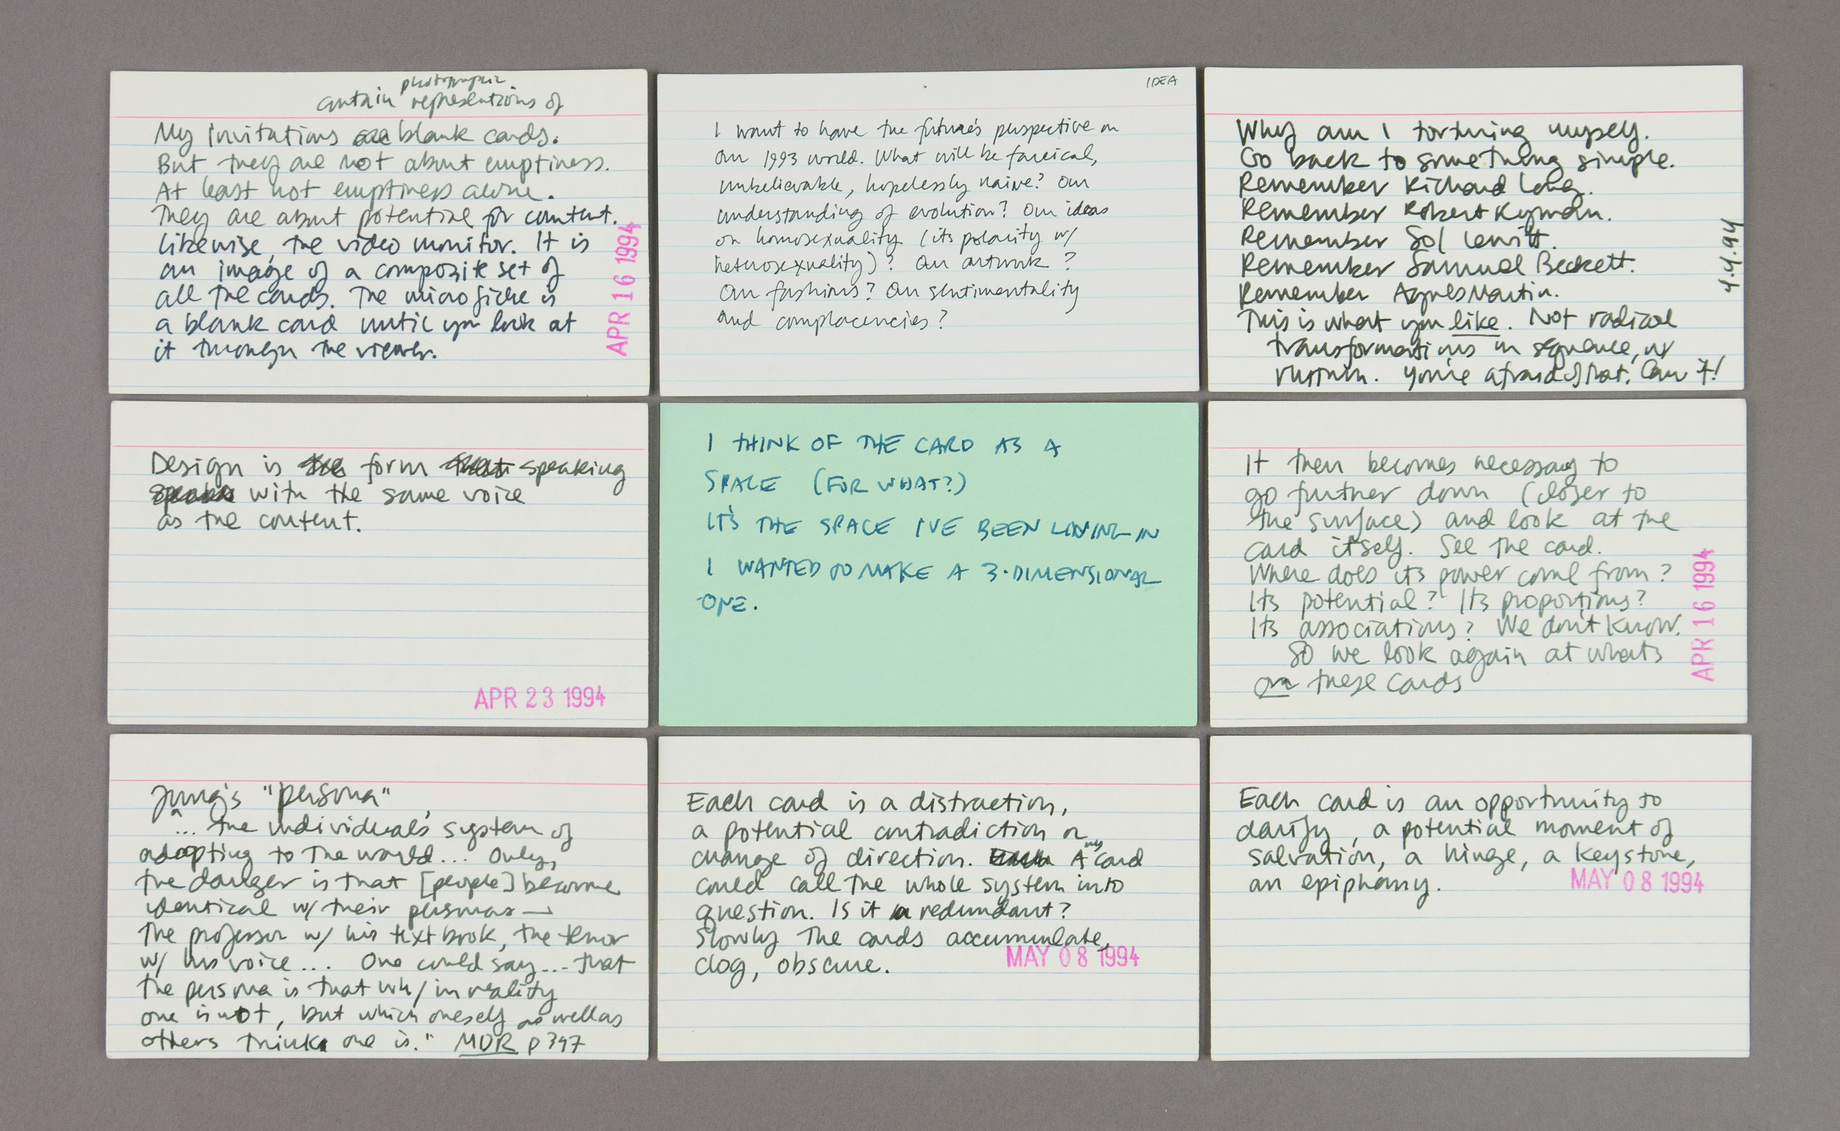 photographic
contain representations of
My invitations are blank cards.
But they are not about emptiness.
At least not emptiness alone.
They are about potential for content.
Likewise, the video monitor. It is
an image of a composite set of
all the cards. The microfiche is
a blank card until you look at
it through the viewer.
APR 16 1994
IDEA
I want to have the future's perspective on
our 1993 world. What will be farcical,
unbelievable, hopelessly naive? Our
understanding of evolution? Our ideas
on homosexuality (its polarity w/
heterosexuality)? Our artwork?
Our fashions? Our sentimentality
and complacencies?
Why am I torturing myself.
Go back to something simple.
Remember Richard Long.
Remember Robert Ryman.
Remember Sol Lewitt.
Remember Samuel Beckett.
Remember Agnes Martin.
This is what you like. Not radical
transformations in sequence, or
rhythm. You're afraid of that. Can it!
4.4.94
Design is form speaking
with the same voice
as the content.
APR 23 1994
I THINK OF THE CARD AS A
SPACE (FOR WHAT?)
IT'S THE SPACE I'VE BEEN LIVING IN
I WANTED TO MAKE A 3-DIMENSIONAL
ONE.
It then becomes necessary to
go further down (closer to
the surface) and look at the
card itself. See the card.
Where does its power come from?
Its potential? Its proportions?
Its associations? We don't know.
So we look again at whats
on these cards
APR 16 1994
Jung's "persona"
"... the individual's system of
adapting to the world... Only,
the danger is that [people] become
identical w/ their personas —
the professor w/ his textbook, the tenor
w/ his voice... One could say... that
the persona is that wh/ in reality
one is not, but which oneself as well as
others think one is." MDR p 397
Each card is a distraction,
a potential contradiction or
change of direction. Any card
could call the whole system into
question. Is it redundant?
Slowly the cards accumulate,
clog, obscure.
MAY 08 1994
Each card is an opportunity to
clarify, a potential moment of
salvation, a hinge, a keystone,
an epiphany.
MAY 08 1994